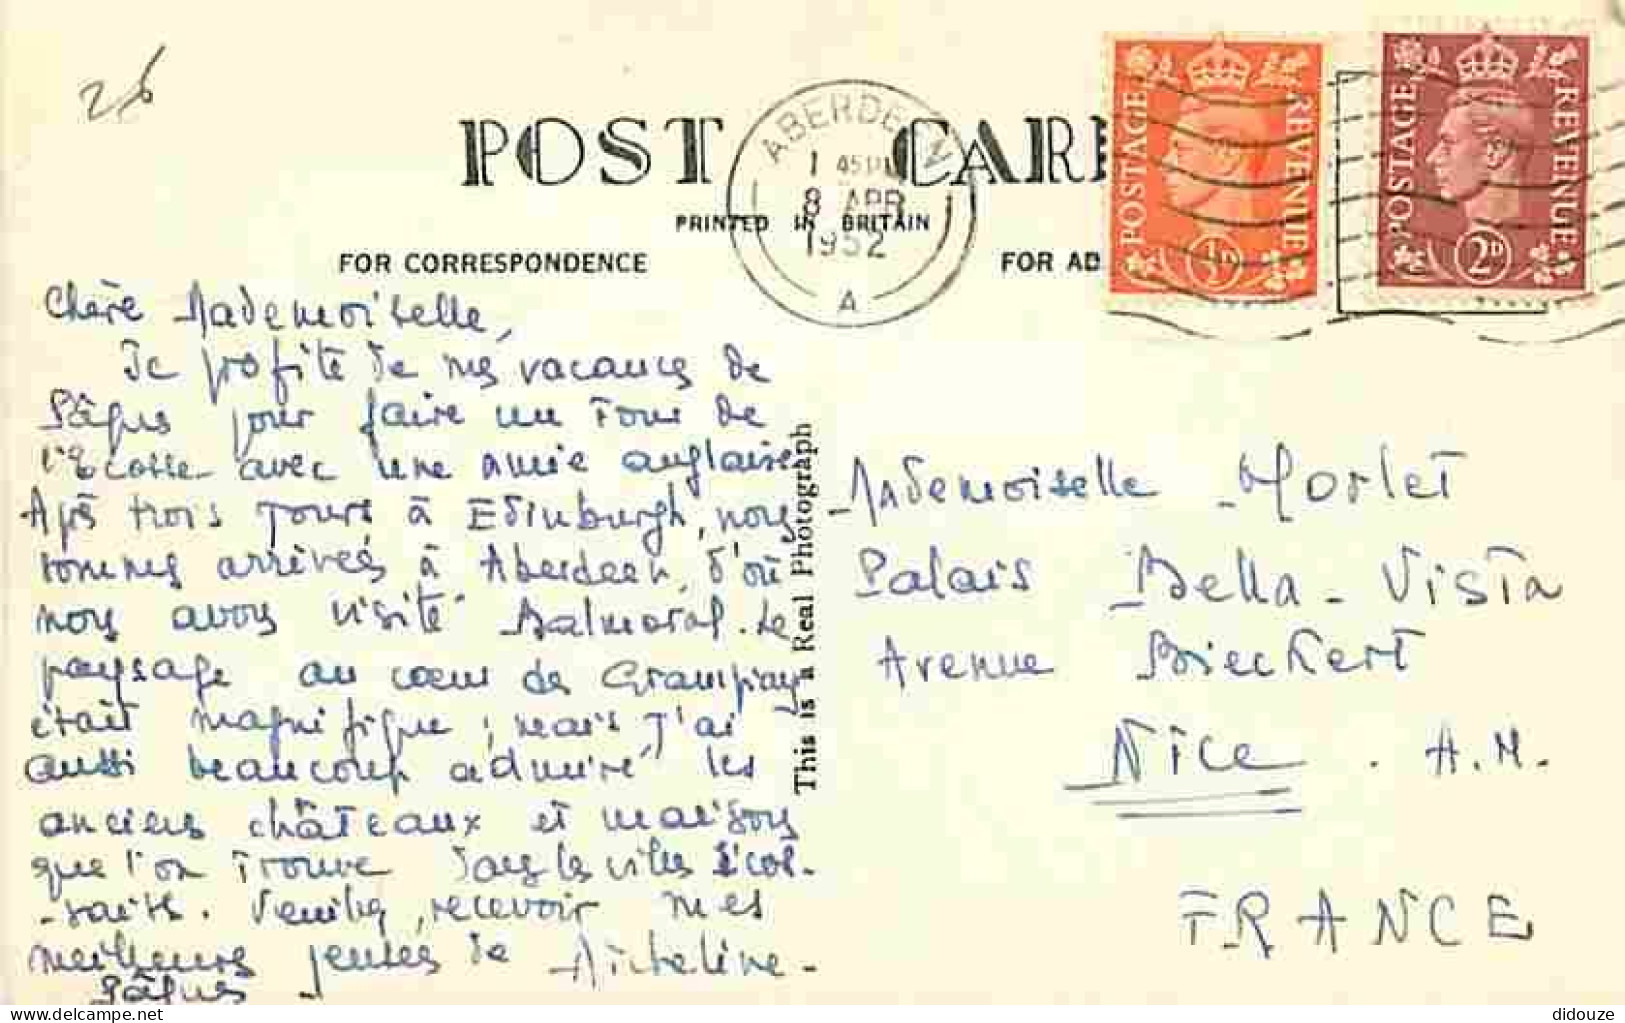 26
POST CAR
PRINTED IN BRITAIN
FOR CORRESPONDENCE
FOR AD
ABERDEEN
1 45 PM
8 APR
1952
A
POSTAGE REVENUE
½D
POSTAGE REVENUE
2D
Chère Mademoiselle,
Je profite de mes vacances de
Pâques pour faire un tour de
l'Ecosse avec une amie anglaise
Après trois jours à Edinburgh, nous
sommes arrivées à Aberdeen, d'où
nous avons visité Balmoral. Le
paysage au cœur des Grampians
était magnifique ; mais j'ai
aussi beaucoup admiré les
anciens châteaux et maisons
que l'on trouve dans les villes écos-
-saises. Veuillez recevoir mes
meilleures pensées de Micheline-
Pâques
This is a Real Photograph
Mademoiselle Morlet
Palais Bella-Vista
Avenue Bieckert
Nice . A.M.
FRANCE
didouze